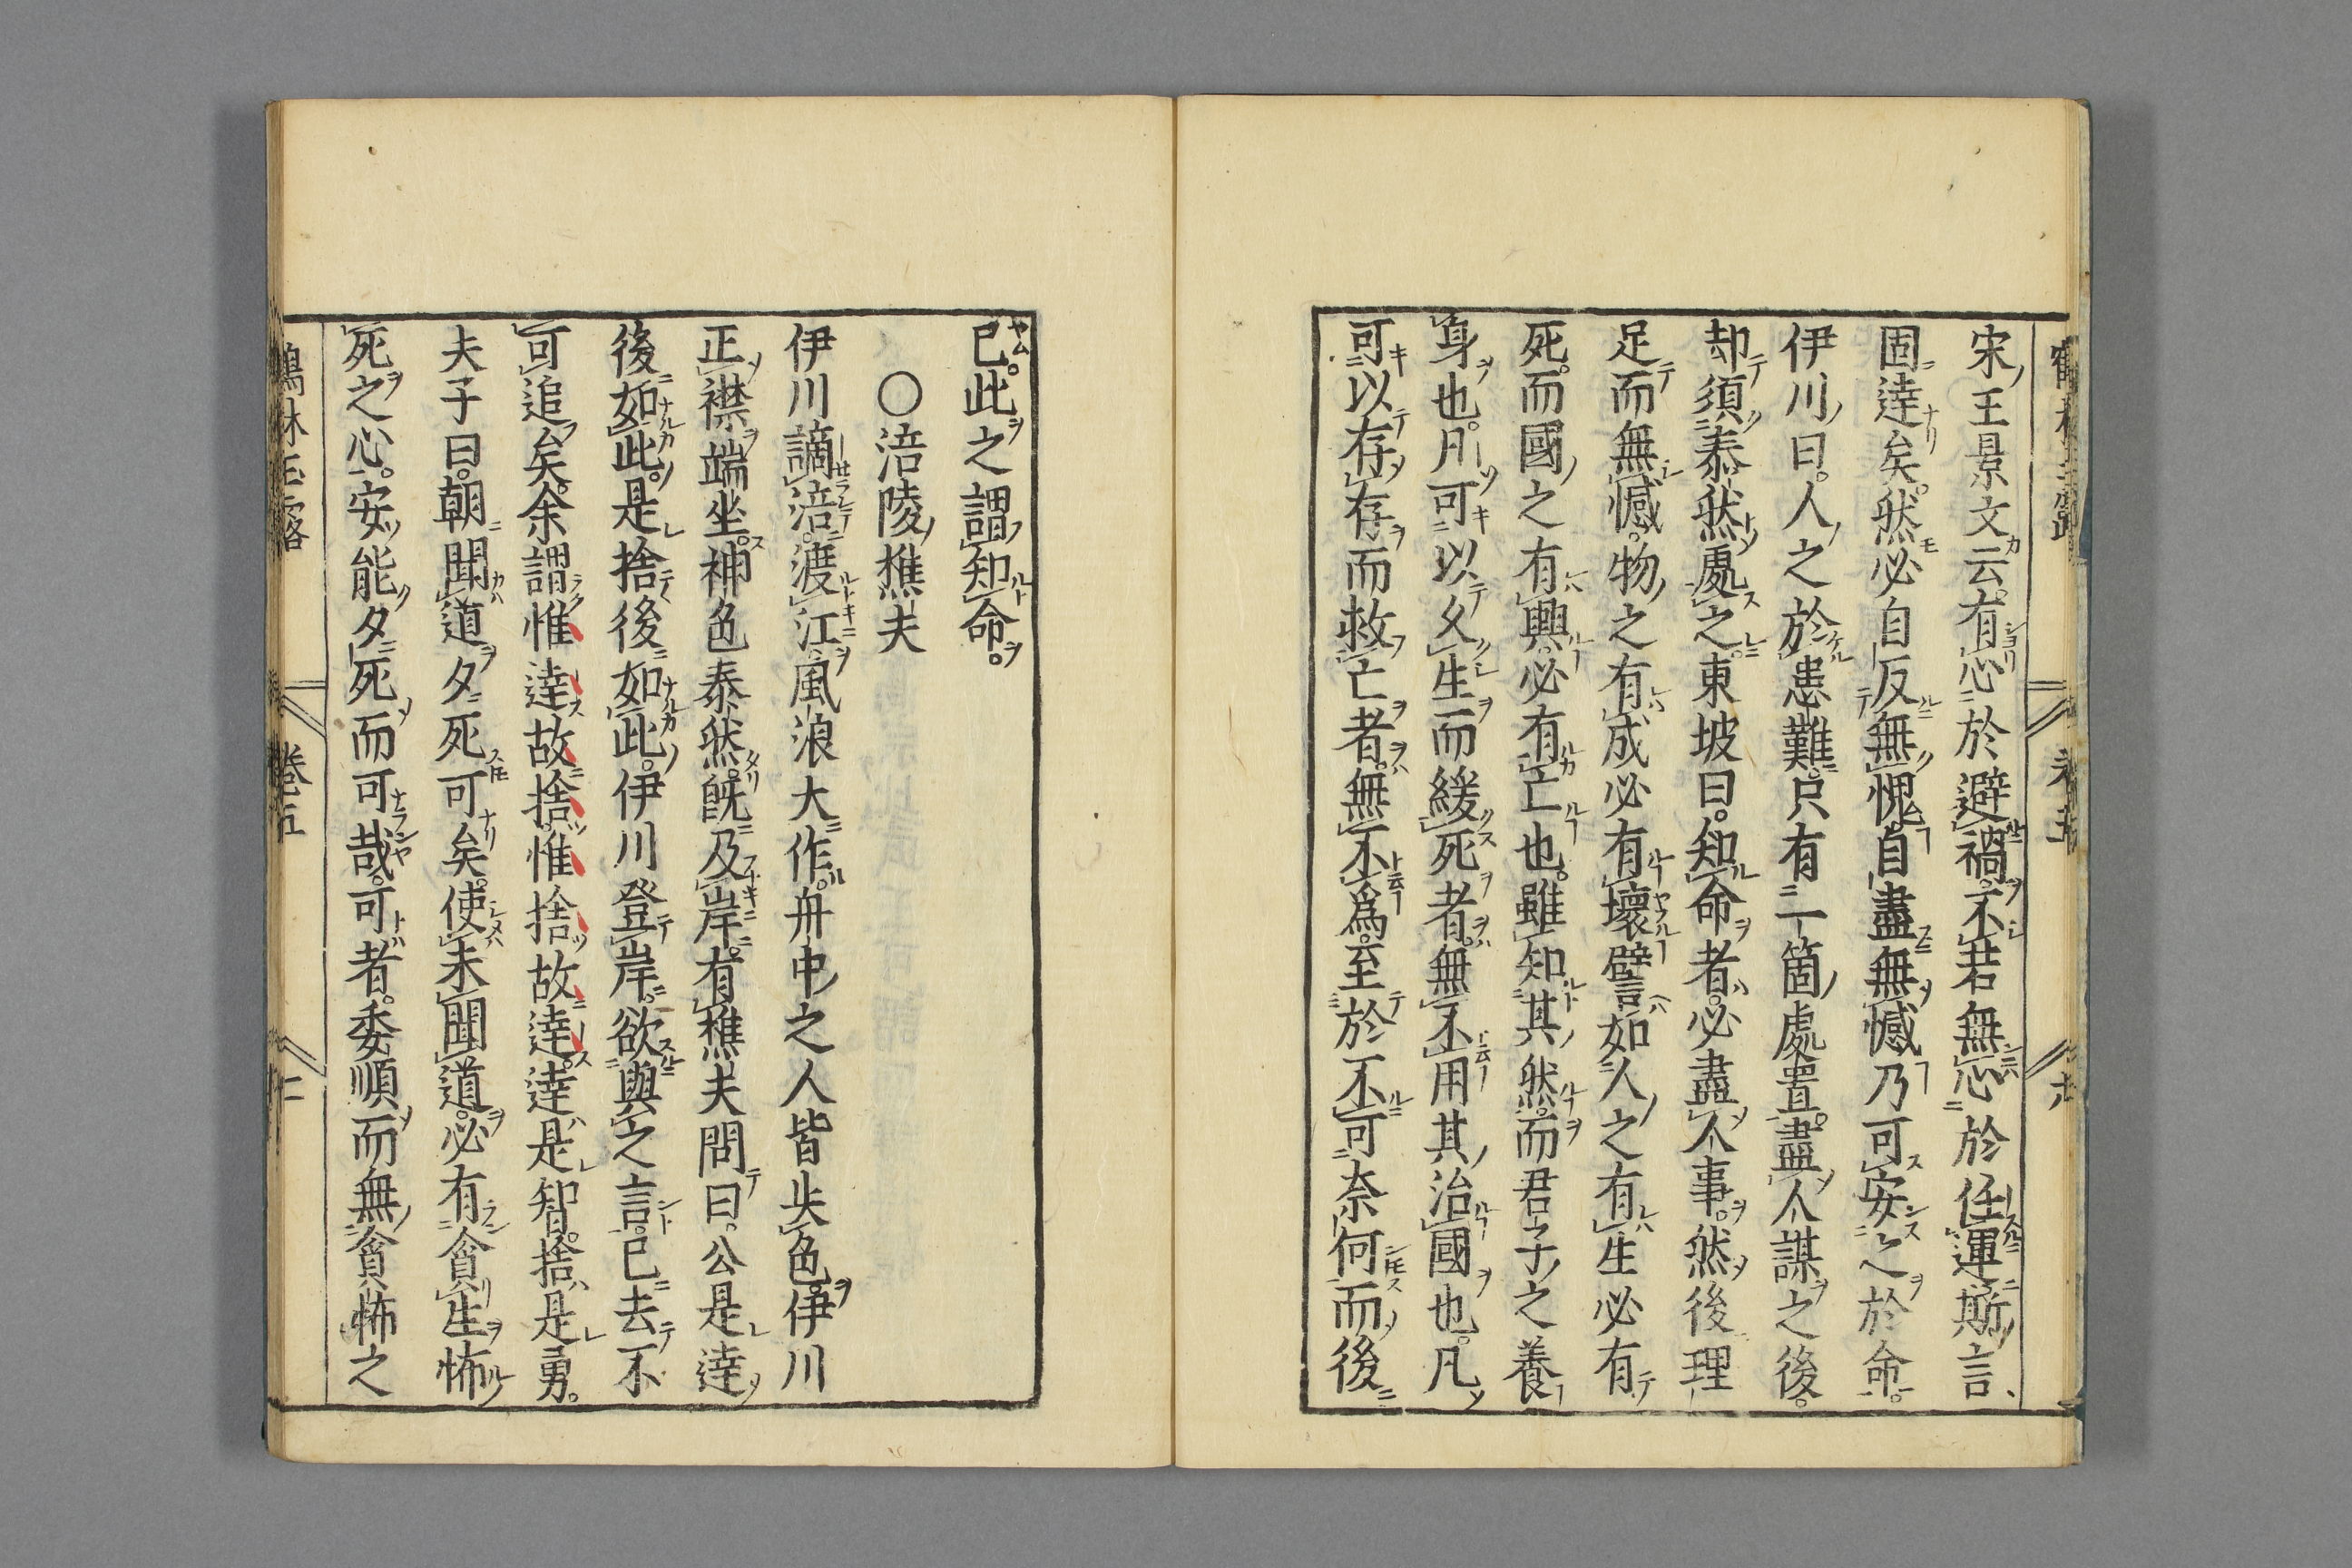 宋王景文云有心於避禍不若無心於任運斯言
固達矣然必自反無愧自盡無憾乃可安之於命
伊川曰人之於患難只有一箇處置盡人謀之後
却須泰然處之東坡曰知命者必盡人事然後理
足而無憾物之有成必有壞譬如人之有生必有
死而國之有興必有亡也雖知其然而君子之養
身也凡可以久生而緩死者無不用其治國也凡
可以存存而救亡者無不爲至於不可奈何而後
已此之謂知命
〇涪陵樵夫
伊川謫涪渡江風浪大作舟中之人皆失色伊川
正襟端坐神色泰然旣及岸有樵夫問曰公是達
後如此是捨後如此伊川登岸欲與之言已去不
可追矣余謂惟達故捨惟捨故達達是智捨是勇
夫子曰朝聞道夕死可矣使未聞道必有貪生怖
死之心安能夕死而可哉可者委順而無貪怖之
鶴林玉露　卷五